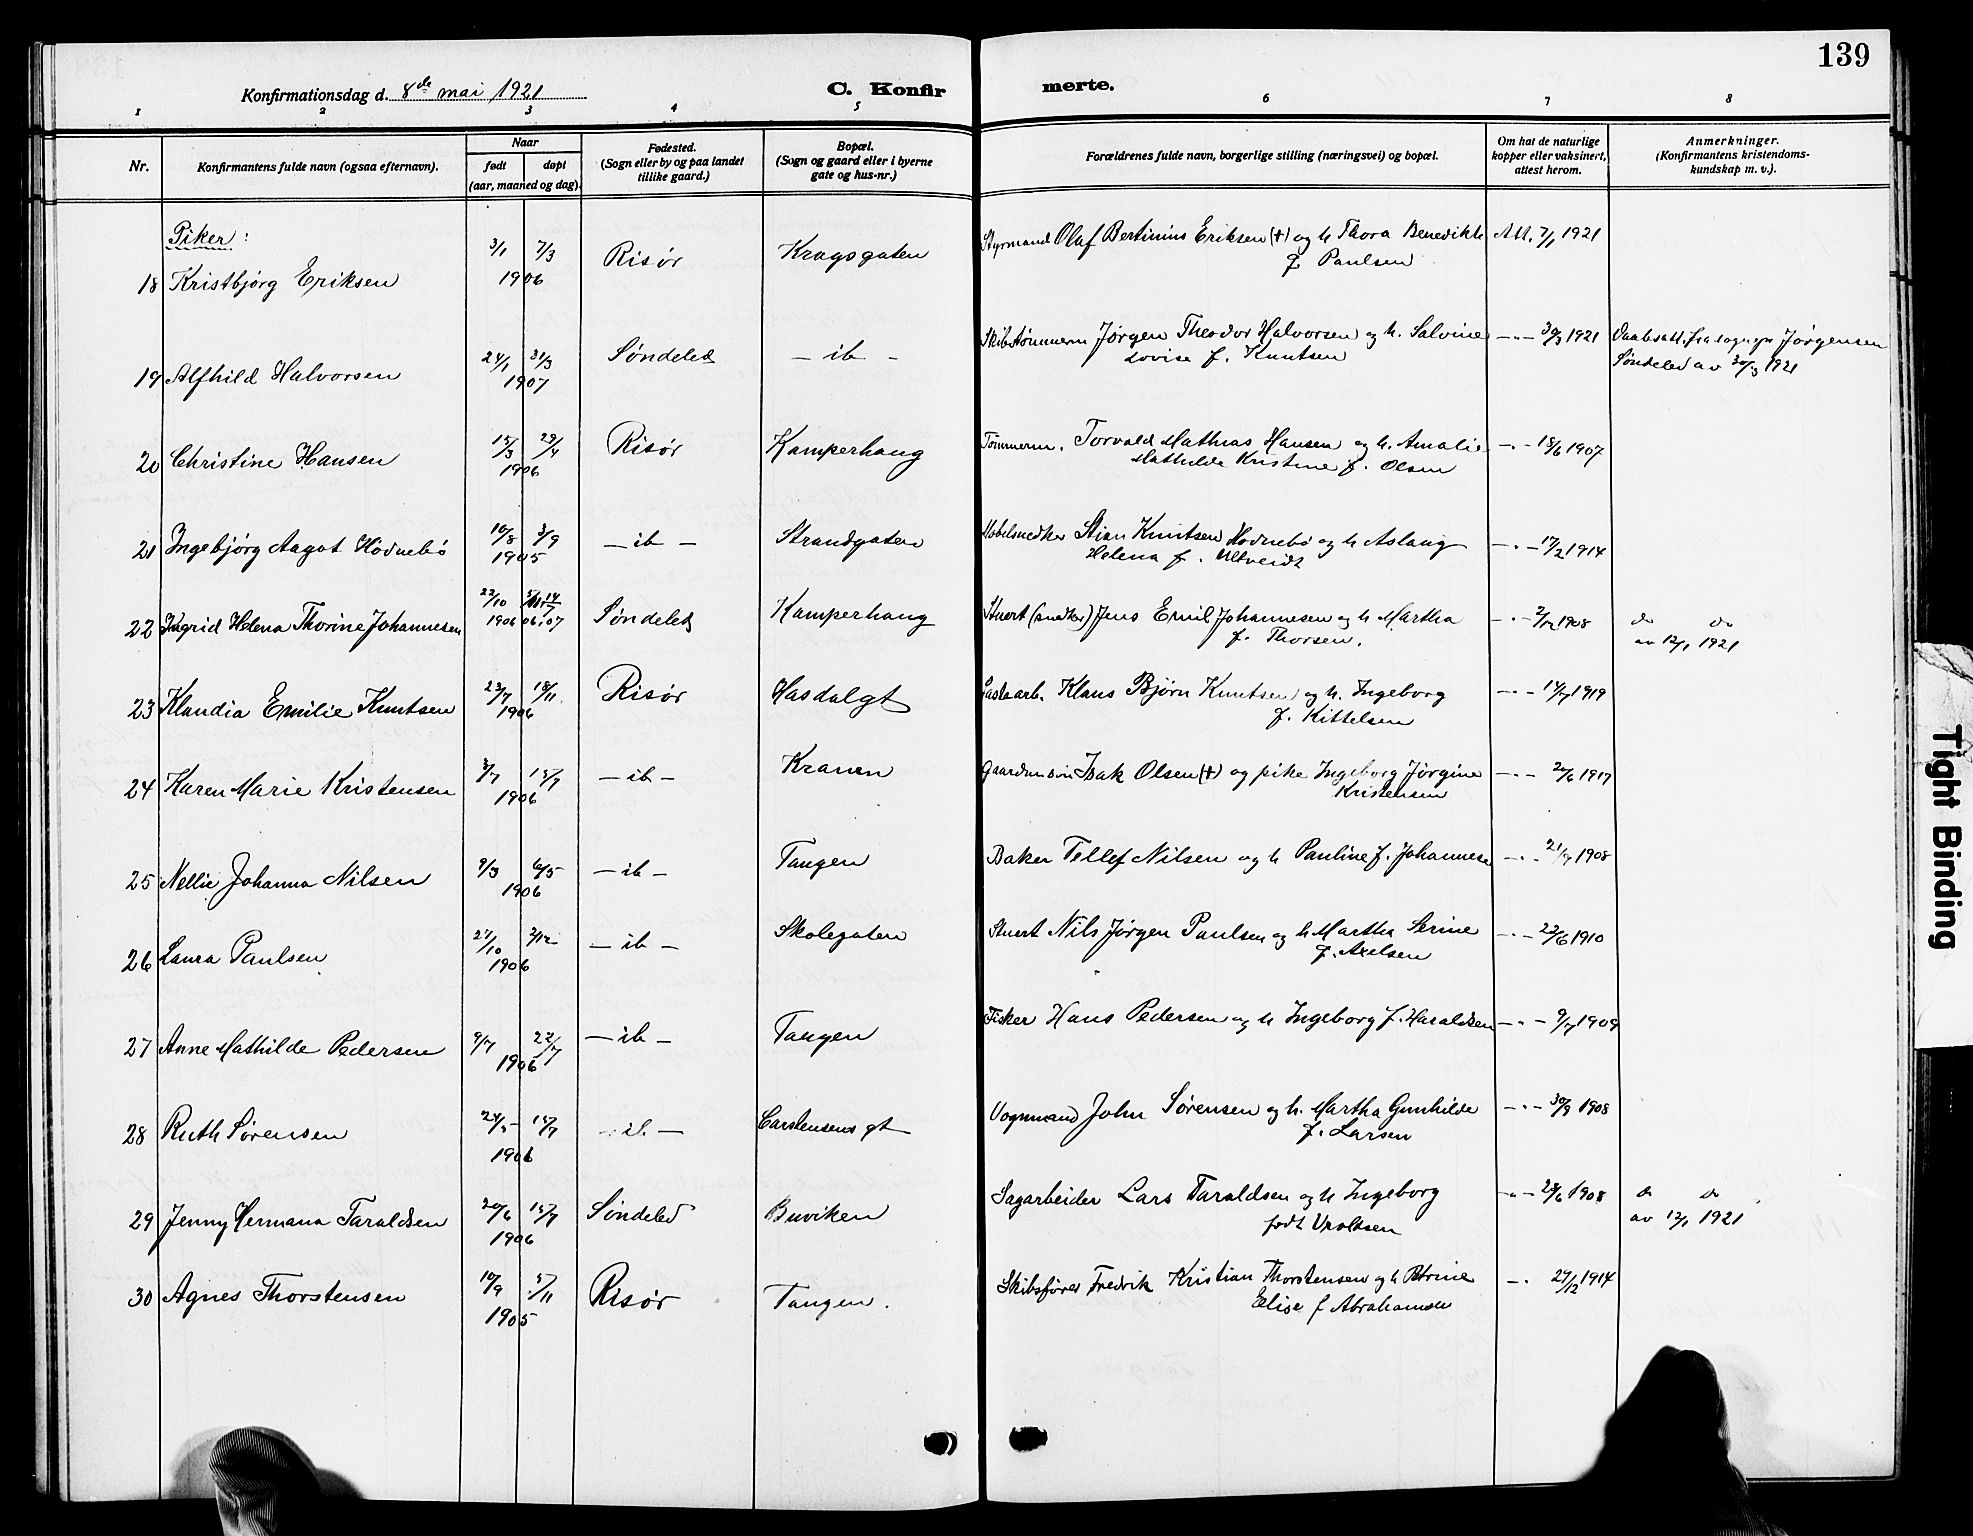 139
Konfirmationsdag d. 8de mai 1921
C. Konfir merte.
1 2 3 4 5 6 7 8
Nr.
Konfirmantens fulde navn (ogsaa efternavn).
Naar
født døpt
(aar, maaned og dag).
Fødested.
(Sogn eller by og paa landet
tillike gaard.)
Bopæl.
(Sogn og gaard eller i byerne
gate og hus-nr.)
Forældrenes fulde navn, borgerlige stilling (næringsvei) og bopæl.
Om hat de naturlige
kopper eller vaksinert,
attest herom.
Anmerkninger.
(Konfirmantens kristendoms-
kundskap m. v.).
Piker:
18 Kristbjørg Eriksen 3/1 7/3 1906 Risør Kragsgaten Styrmand Olaf Bertinius Eriksen (+) og h Thora Benedikte Att. 7/1 1921
f Paulsen
19 Alfhild Halvorsen 24/1 31/3 1907 Søndeled - ib - Skibstømmerm Jørgen Theodor Halvorsen og h. Salvine - " - 30/3 1921 Daabsatt. fra sognepr Jørgensen
Lovise f. Knutsen Søndeled av 30/3 1921
20 Christine Hansen 15/3 29/4 1906 Risør Kamperhaug Tømmerm. Torvald Mathias Hansen og h. Amalie - " - 18/6 1907
Mathilde Kristine f. Olsen
21 Ingebjørg Aagot Hødnebø 10/8 3/9 1905 - ib - Strandgaten Møbelsnedker Stian Knutsen Hødnebø og h Aslaug - " - 17/2 1914
Helena f. Ultveidt
22 Ingrid Helena Thorine Johannesen 22/10 1906 06. 07 Søndeled Kamperhaug Stuert (snedker) Jens Emil Johannesen og h Martha - " - 2/12 1908 do do
f. Thorsen. av 12/1 1921
23 Klaudia Emilie Knutsen 23/7 18/11 1906 Risør Hasdalgt Lastearb. Klaus Bjørn Knutsen og h. Ingeborg - " - 14/7 1919
f. Kittelsen
24 Karen Marie Kristensen 3/7 15/7 1906 - ib - Kranen Gaardmanssøn Isak Olsen (+) og pike Ingeborg Jørgine - " - 20/6 1917
Kristensen
25 Nellie Johanna Nilsen 9/3 6/5 1906 - ib - Tangen Baker Tellef Nilsen og h Pauline f. Johannesen - " - 21/7 1908
26 Laura Paulsen 27/10 2/12 1906 - ib - Skolegaten Stuert Nils Jørgen Paulsen og h Martha Serine - " - 22/6 1910
f. Axelsen
27 Anne Mathilde Pedersen 9/7 22/7 1906 - ib - Tangen Fisker Hans Pedersen og h Ingeborg f. Haraldsen - " - 9/7 1909
28 Ruth Sørensen 24/5 15/7 1906 - ib - Carstensens gt Vognmand John Sørensen og h. Martha Gunhilde - " - 30/9 1908
f. Larsen
29 Jenny Hermana Taraldsen 20/6 15/7 1906 Søndeled Buviken Sagarbeider Lars Taraldsen og h Ingeborg - " - 28/6 1908 do do
født Vroldsen av 12/1 1921
30 Agnes Thorstensen 10/9 5/11 1905 Risør Tangen. Skibsfører Fredrik Kristian Thorstensen og h Petrine - " 27/12 1914
Elise f Abrahamsen
Tight Binding